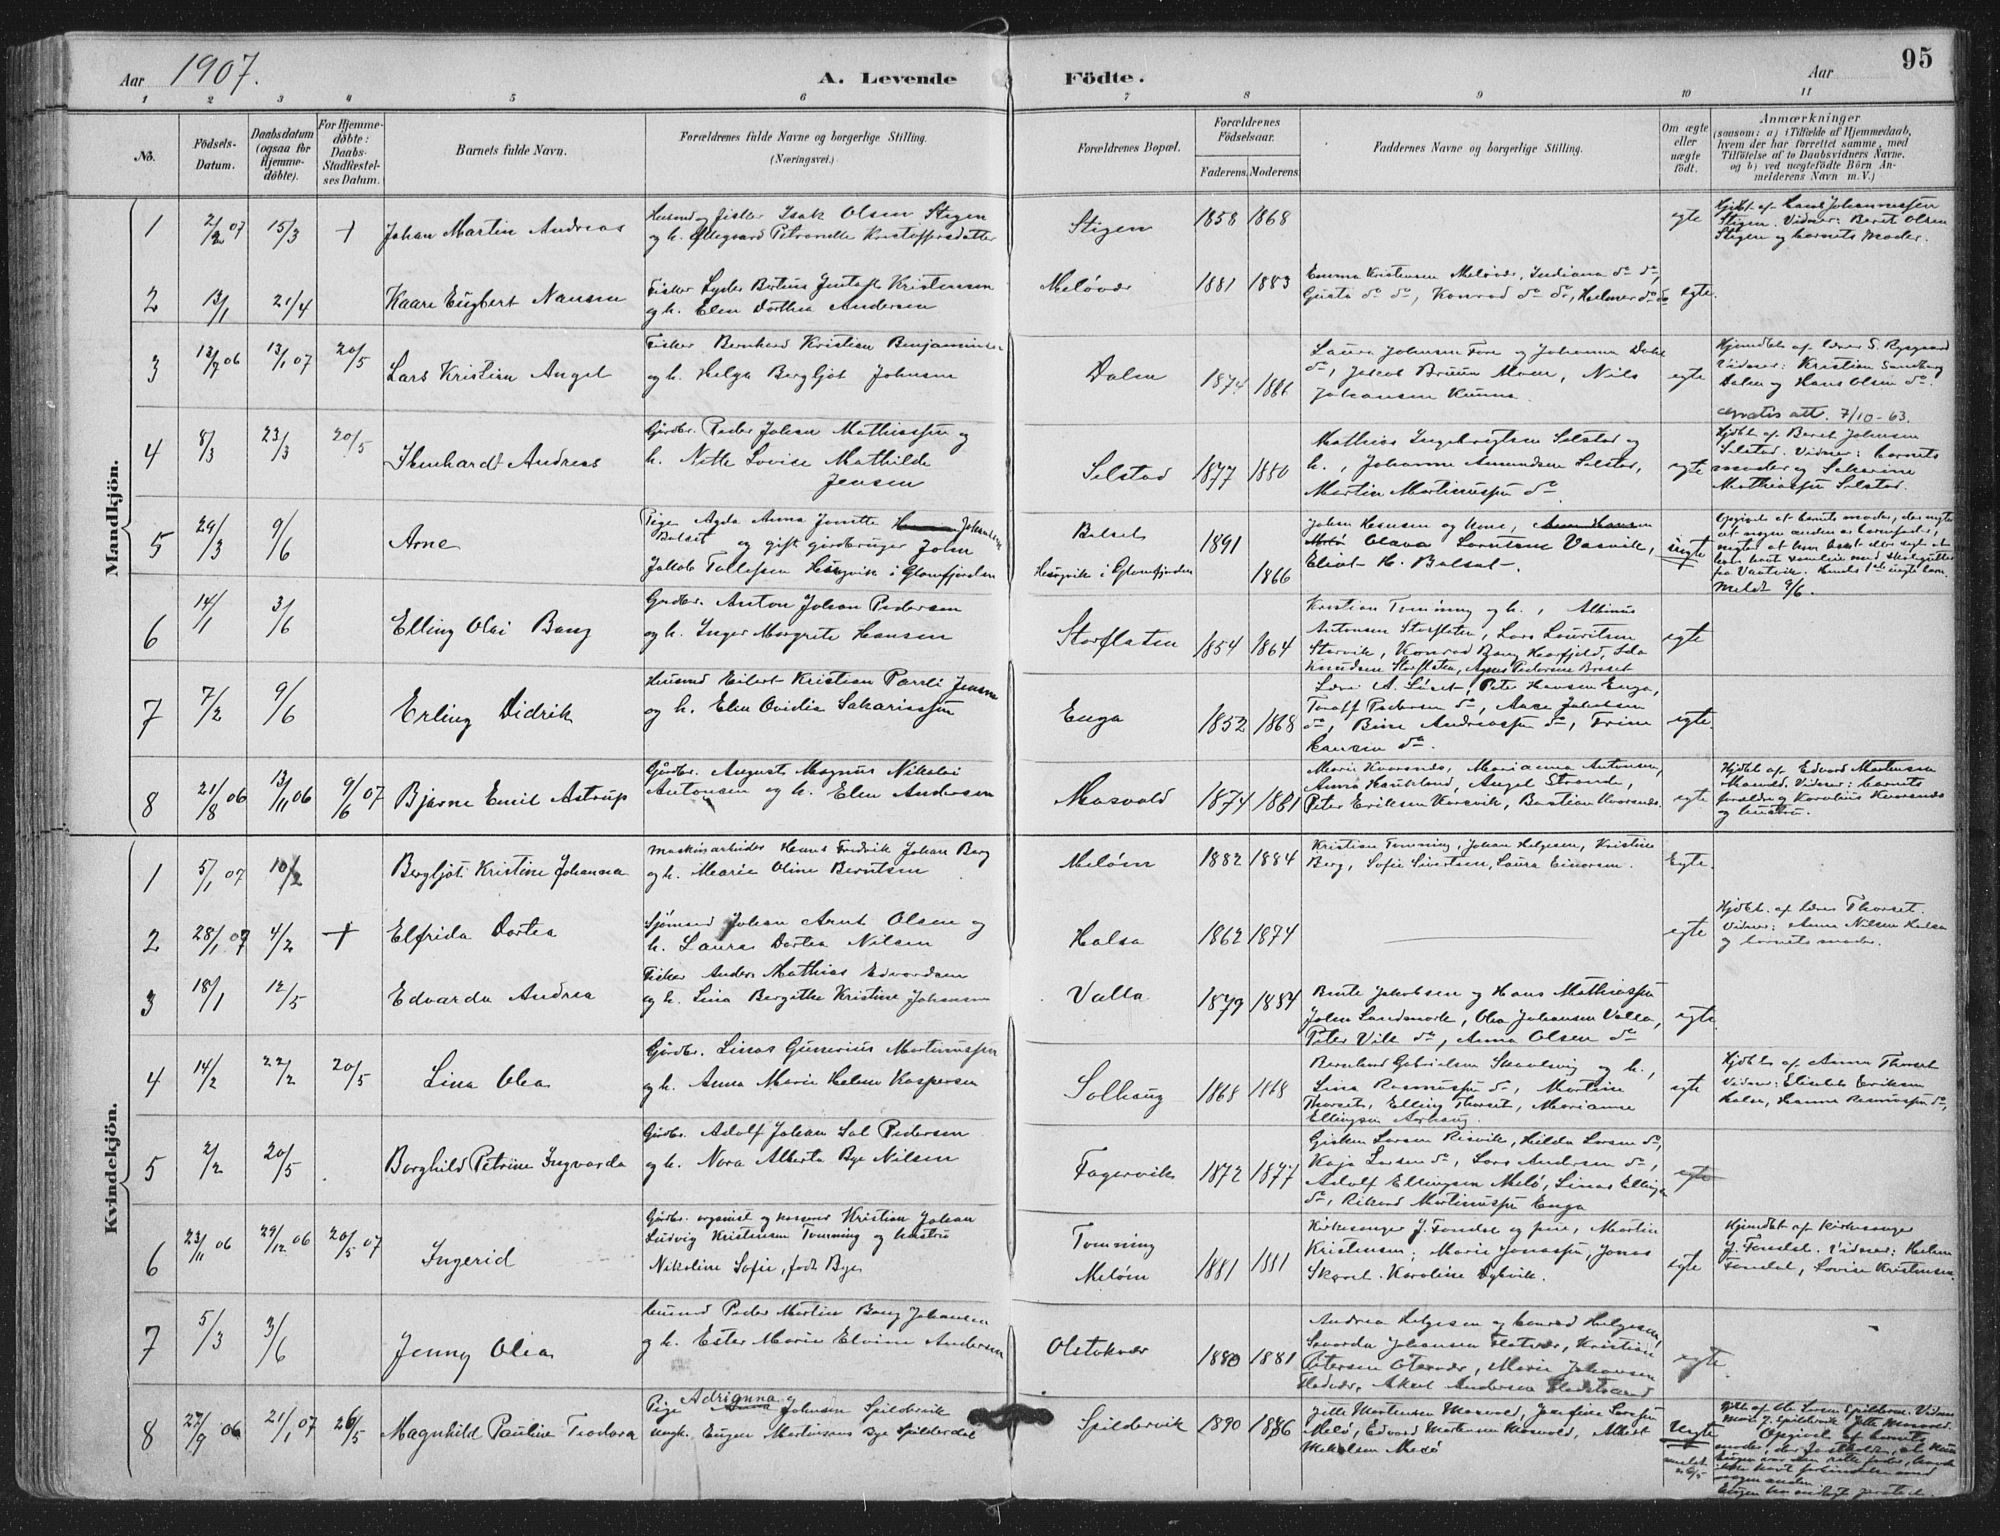 95
Aar 1907.
A. Levende
Födte.
Aar
1 2 3 4 5 6 7 8 9 10 11
No.
Födsels-
Datum.
Daabsdatum
(ogsaa for
Hjemme-
döbte).
For Hjemme-
döbte:
Daabs-
Stadfæstel-
ses Datum.
Barnets fulde Navn.
Forældrenes fulde Navne og borgerlige Stilling.
(Næringsvei.)
Forældrenes Bopæl.
Forældrenes
Födselsaar.
Faderens. Moderens.
Faddernes Navne og borgerlige Stilling.
Om ægte
eller
uægte
födt.
Anmærkninger
(saasom: a) i Tilfælde af Hjemmedaab,
hvem der har forrettet samme, med
Tilföielse af to Daabsvidners Navne,
og b) ved uægtefödte Börn An-
melderens Navn m. V.)
Mandkjön.
1 2/2 07 15/3 +
Johan Martin Andreas
Isak Olsen Stigen
og h. Petronelle Kristoffersdatter
Stigen 1858 1868
egte
Hjdbt af Hans Johannessen
Stigen. Vidner: Beret Olsen
Stigen og barnets moder.
2 13/1 21/4
Kaare Engbert Nansen
Fisker Lyder Bertius Gustaft Kristensen
og h. Elen Dorthea Andersen
Meløvær 1881 1883
Emma Kristensen Meløvær, Indiana do do,
Gusta do do, Konrad do do, Helmer do do
egte.
3 12/9 06 13/1 07 20/5
Lars Kristian Angel
Fisker Bernhard Kristian Benjaminsen
og h. Helga Bergljot Johnsen
Dalen 1874 1886
Laura Johnsen Fore og Johanna Dalen
do, Jakob Bruun Moen, Nils
Johansen Kunna.
egte
Hjemdbt af lærer S. Rysgaard
Vidner: Kristian Sandberg
Dalen og Hans Olsen do.
Gratis att. 7/10-63.
4 8/3 23/3 20/5
Ikenhardt Andreas
Gårdbr. Peder Johan Mathiassen og
h. Nette Lovise Mathilde
Jensen
Selstad 1877 1880
Mathias Ingebrigtsen Selstad og
h., Johanna Amundsen Selstad,
Martin Martinussen do
egte
Hjdbt af Beret Johnsen
Selstad. Vidner: barnets
moder og Sakarine
Mathiassen Selstad.
5 29/3 9/6
Arne
Pige Agda Anna Jonette Johansen
Balset og gift gårdbruger John
Jakob Tollefsen Haugvik i Glomfjorden
Balset
Haugvik i Glomfjorden
1891
1866
Johan Hansen og kone,
Olava Lorntsen Vasvik,
Eliot H. Balsat.
uegte
Meldt 9/6.
6 14/1 3/6
Elling Olai Bang
Gårdbr. Anton Johan Pedersen
og h. Inger Margrete Hansen
Storflaten 1854 1864
Kristian Tømming og h., Albinus
Antonsen Storflaten, Lars Lauritsen
Storvik, Konrad Bang Harfjeld, Ida
Knudsen Storflaten, Agnes Pedersen Braset
egte
7 7/2 9/6
Erling Didrik
Husmd Eilert Kristian Parelí Jensen
og h. Elen Ovidia Sakariassen
Enga 1852 1868
Peter Hansen Enga,
Toralf Pedersen do, Aase Jakobsen
do, Bine Andreassen do, Trine
Hansen do.
egte.
8 21/8 06 13/11 06 9/6 07
Bjarne Emil Astrup
Gårdbr. August Magnus Nikolai
Antonsen og h. Elen Andersen
Mosvold 1874 1881
Marie Kvarsnes, Marianna Antonsen,
Anna Haukland, Angel Strand,
Peter Eriksen Korsvik, Bastian Kvarsnes.
egte
Hjdbt af Edvard Mortensen
Mosvold. Vidner: barnets
forældre og Karolius Kvarsnes
og hustru.
Kvindekjön.
1 5/1 07 10/2
Bergljot Kristine Johanna
Maskinarbeider Hans Fredrik Johan Berg
og h. Marie Oline Berntsen
Meløen 1882 1884
Kristian Tømming, Johan Helgesen, Kristine
Berg, Sofie Sivertsen, Laura Einarsen.
Egte.
2 28/1 07 4/2 +
Elfrida Dortea
Sjømand Johan Arnt Olsen og
h. Laura Dortea Nilsen
Halsa 1862 1874
egte
Hjdbt. af lærer Thorset.
Vidner: Anne Nilsen Halsa
og barnets moder.
3 18/1 12/5
Edvarda Andrea
Fisker Anders Mathias Edvardsen
og h. Lina Bergithe Kristine Johansen
Valla 1879 1884
Bente Jakobsen og Hans Mathiassen
John Sandsmark, Olea Johansen Valla,
Peter Vik do, Anna Olsen do
egte
4 14/2 22/2 20/5
Lina Olea
Gårdbr. Linas Gunerius Martinussen
og h. Anna Marie Helene Kaspersen
Solhaug 1868 1868
Bernhard Gabrielsen Skaalsvig og h.,
Lina Rasmussen do, Martine
Thorset, Elling Thorset, Marianne
Ellingsen Aashaug.
egte
Hjdbt af Anna Thorset
Vidner: Elisabet Eriksen
Halsa, Hanna Rasmussen do,
5 2/2 20/5
Borghild Petrine Ingvarda
Gårdbr. Adolf Johan Sal Pedersen
og h. Nora Alberta Bye Nilsen
Fagervik 1872 1877
Gisken Larsen Risvik, Hilda Larsen do,
Kaja Larsen do, Lars Andersen do,
Adolf Ellingsen Melø, Linas Ellingsen
do, Rikard Martinussen Enga
egte
6 23/11 06 29/12 06 20/5 07
Ingerid
Gårdbr. organist og kasserer Kristian Johan
Ludvig Kristensen Tømming og hustru
Nikoline Sofie, født Bye
Tømming
Meløen
1881 1881
Kirkesanger J. Fondal og frue, Martin
Kristensen, Marie Jonassen, Jonas
Skaret. Karoline Dykvik.
egte
Hjemdbt af kirkesanger
J. Fondal. Vidner: Helene
Fondal, Lovise Kristensen.
7 5/3 3/6
Jenny Olea
Husmd Peder Martin Bang Johansen
og h. Ester Marie Elvine Andersen
Olstokvær 1880 1881
Andrea Helgesen og Konrad Helgesen,
Johansen Flatvær, Kristian
Petersen Otervær, Marie Johansen
Flatvær, Aksel Andersen
egte
8 27/9 06 21/1 07 26/5
Magnhild Pauline Teodora
Pige Adrianna Johnsen Spildervik og
ungk. Eugen Martinsen Bye Spilderdal
Spildervik 1890 1886
Jette Mortensen Mosvold, Josefine Larsen
Melø, Edvard Mortensen Mosvold, Albert
Mikalsen Melø
Uegte
meldt
26/5
Opgivet af barnets
moder, der fastholder, at